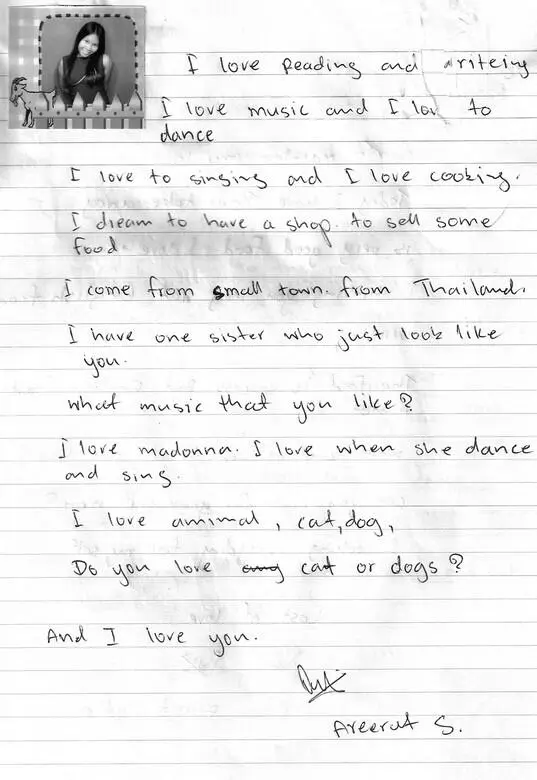 I love reading and writeing
I love music and I lov to
dance
I love to singing and I love cooking.
I dream to have a shop. to sell some
food.
I come from small town. from Thailand.
I have one sister who just look like
you.
What music that you like?
I love madonna. I love when she dance
and sing.
I love amimal, cat, dog,
Do you love cat or dogs?
And I love you.
Areerat S.